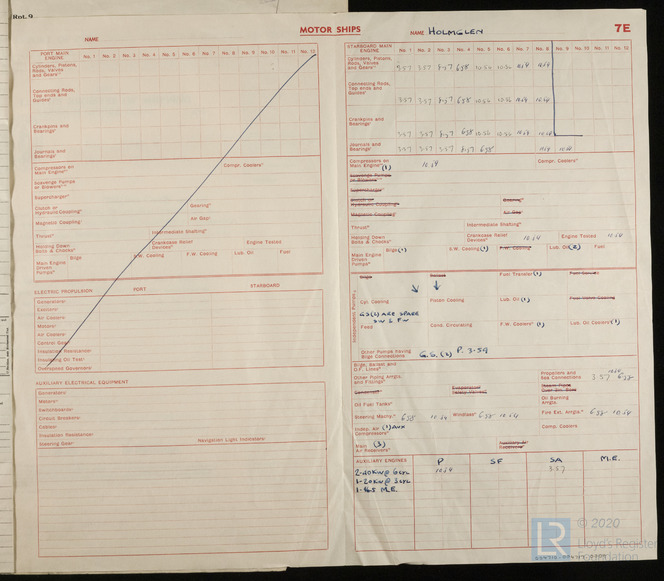 Rot. 9
MOTOR SHIPS
NAME
PORT MAIN ENGINE No. 1 No. 2 No. 3 No. 4 No. 5 No. 6 No. 7 No. 8 No. 9 No. 10 No. 11 No. 12
Cylinders, Pistons,
Rods, Valves
and Gears
Connecting Rods,
Top Ends and
Guides
Crankpins and
Bearings
Journals and
Bearings
Compressors on
Main Engine Compr. Coolers
Scavenge Pumps
or Blowers
Supercharger
Clutch or Gearing
Hydraulic Coupling
Magnetic Coupling Air Gap
Thrust Intermediate Shafting
Holding Down Crankcase Relief Engine Tested
Bolts & Chocks Devices
Main Engine Bilge S.W. Cooling F.W. Cooling Lub. Oil Fuel
Driven
Pumps
ELECTRIC PROPULSION PORT STARBOARD
Generators
Exciters
Air Coolers
Motors
Air Coolers
Control Gear
Insulation Resistance
Insulating Oil Test
Overspeed Governors
AUXILIARY ELECTRICAL EQUIPMENT
Generators
Motors
Switchboards
Circuit Breakers
Cables
Insulation Resistance
Steering Gear Navigation Light Indicators
NAME HOLMGLEN 7E
STARBOARD MAIN ENGINE No. 1 No. 2 No. 3 No. 4 No. 5 No. 6 No. 7 No. 8 No. 9 No. 10 No. 11 No. 12
Cylinders, Pistons,
Rods, Valves
and Gears 3.57 3.57 3.57 6.58 10.56 10.56 10.54 10.54
Connecting Rods,
Top Ends and
Guides 3.57 3.57 3.57 6.58 10.56 10.56 10.54 10.54
Crankpins and
Bearings 3.57 3.57 3.57 6.58 10.56 10.56 10.54 10.54
Journals and
Bearings 3.57 3.57 3.57 3.57 6.58 10.54 10.54
Compressors on
Main Engine (1) 10.54 Compr. Coolers
Scavenge Pumps
or Blowers
Supercharger
Clutch or Gearing
Hydraulic Coupling
Magnetic Coupling Air Gap
Thrust Intermediate Shafting
Holding Down Crankcase Relief Engine Tested
Bolts & Chocks Devices 10.54
Main Engine Bilge (1) S.W. Cooling (1) F.W. Cooling Lub. Oil (2) Fuel
Driven
Pumps
Independent Pumps
Bilge Ballast Fuel Transfer (1)
Cyl. Cooling Piston Cooling Lub. Oil (1)
GS(2) ARE SPARE
SW & FW
Feed Cond. Circulating F.W. Coolers (1) Lub. Oil Coolers (1)
Other Pumps Having
Bilge Connections G.S. (2) P. 3.59
Bilge, Ballast and
O.F. Lines
Other Piping Arrgts.
and Fittings
Propellers and
Sea Connections 3.57
Condenser
Oil Fuel Tanks Oil Burning
Arrgts.
Steering Machy. 6.58 10.54 Windlass 6.58 10.54 Fire Ext. Arrgts. 10.54
Indep. Air (1) AUX
Compressors Comp. Coolers
Main (3)
Air Receivers
AUXILIARY ENGINES P SF SA M.E.
2-40KW @ 6 CYL 10.54 3.57
1-20KW @ 3 CYL
1-165 M.E.
LR
© 2020
Lloyd's Register
Foundation